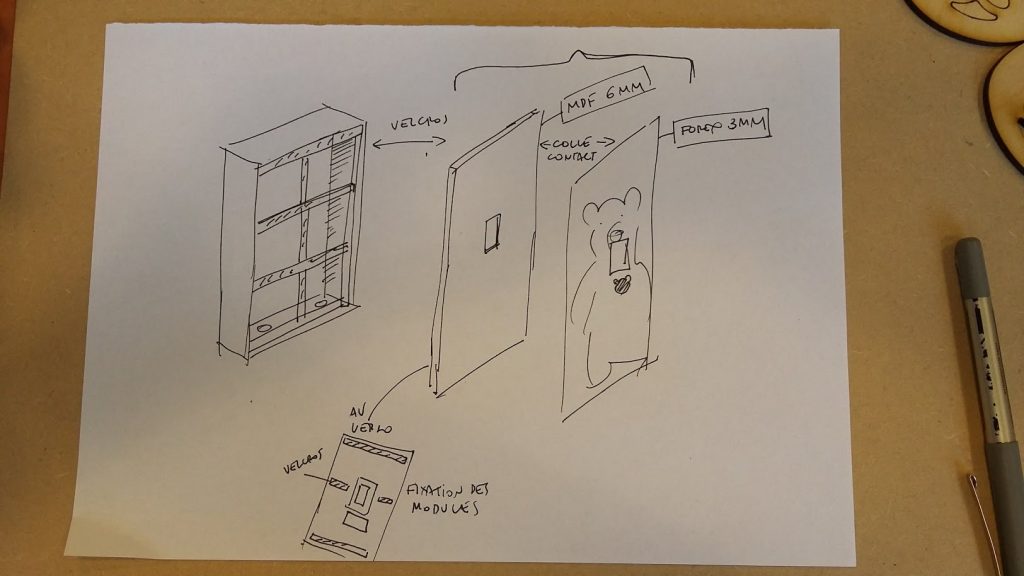 VELCROS
MDF 6MM
COLLE
CONTACT
FOREX 3MM
AU
VERSO
VELCROS
FIXATION DES
MODULES